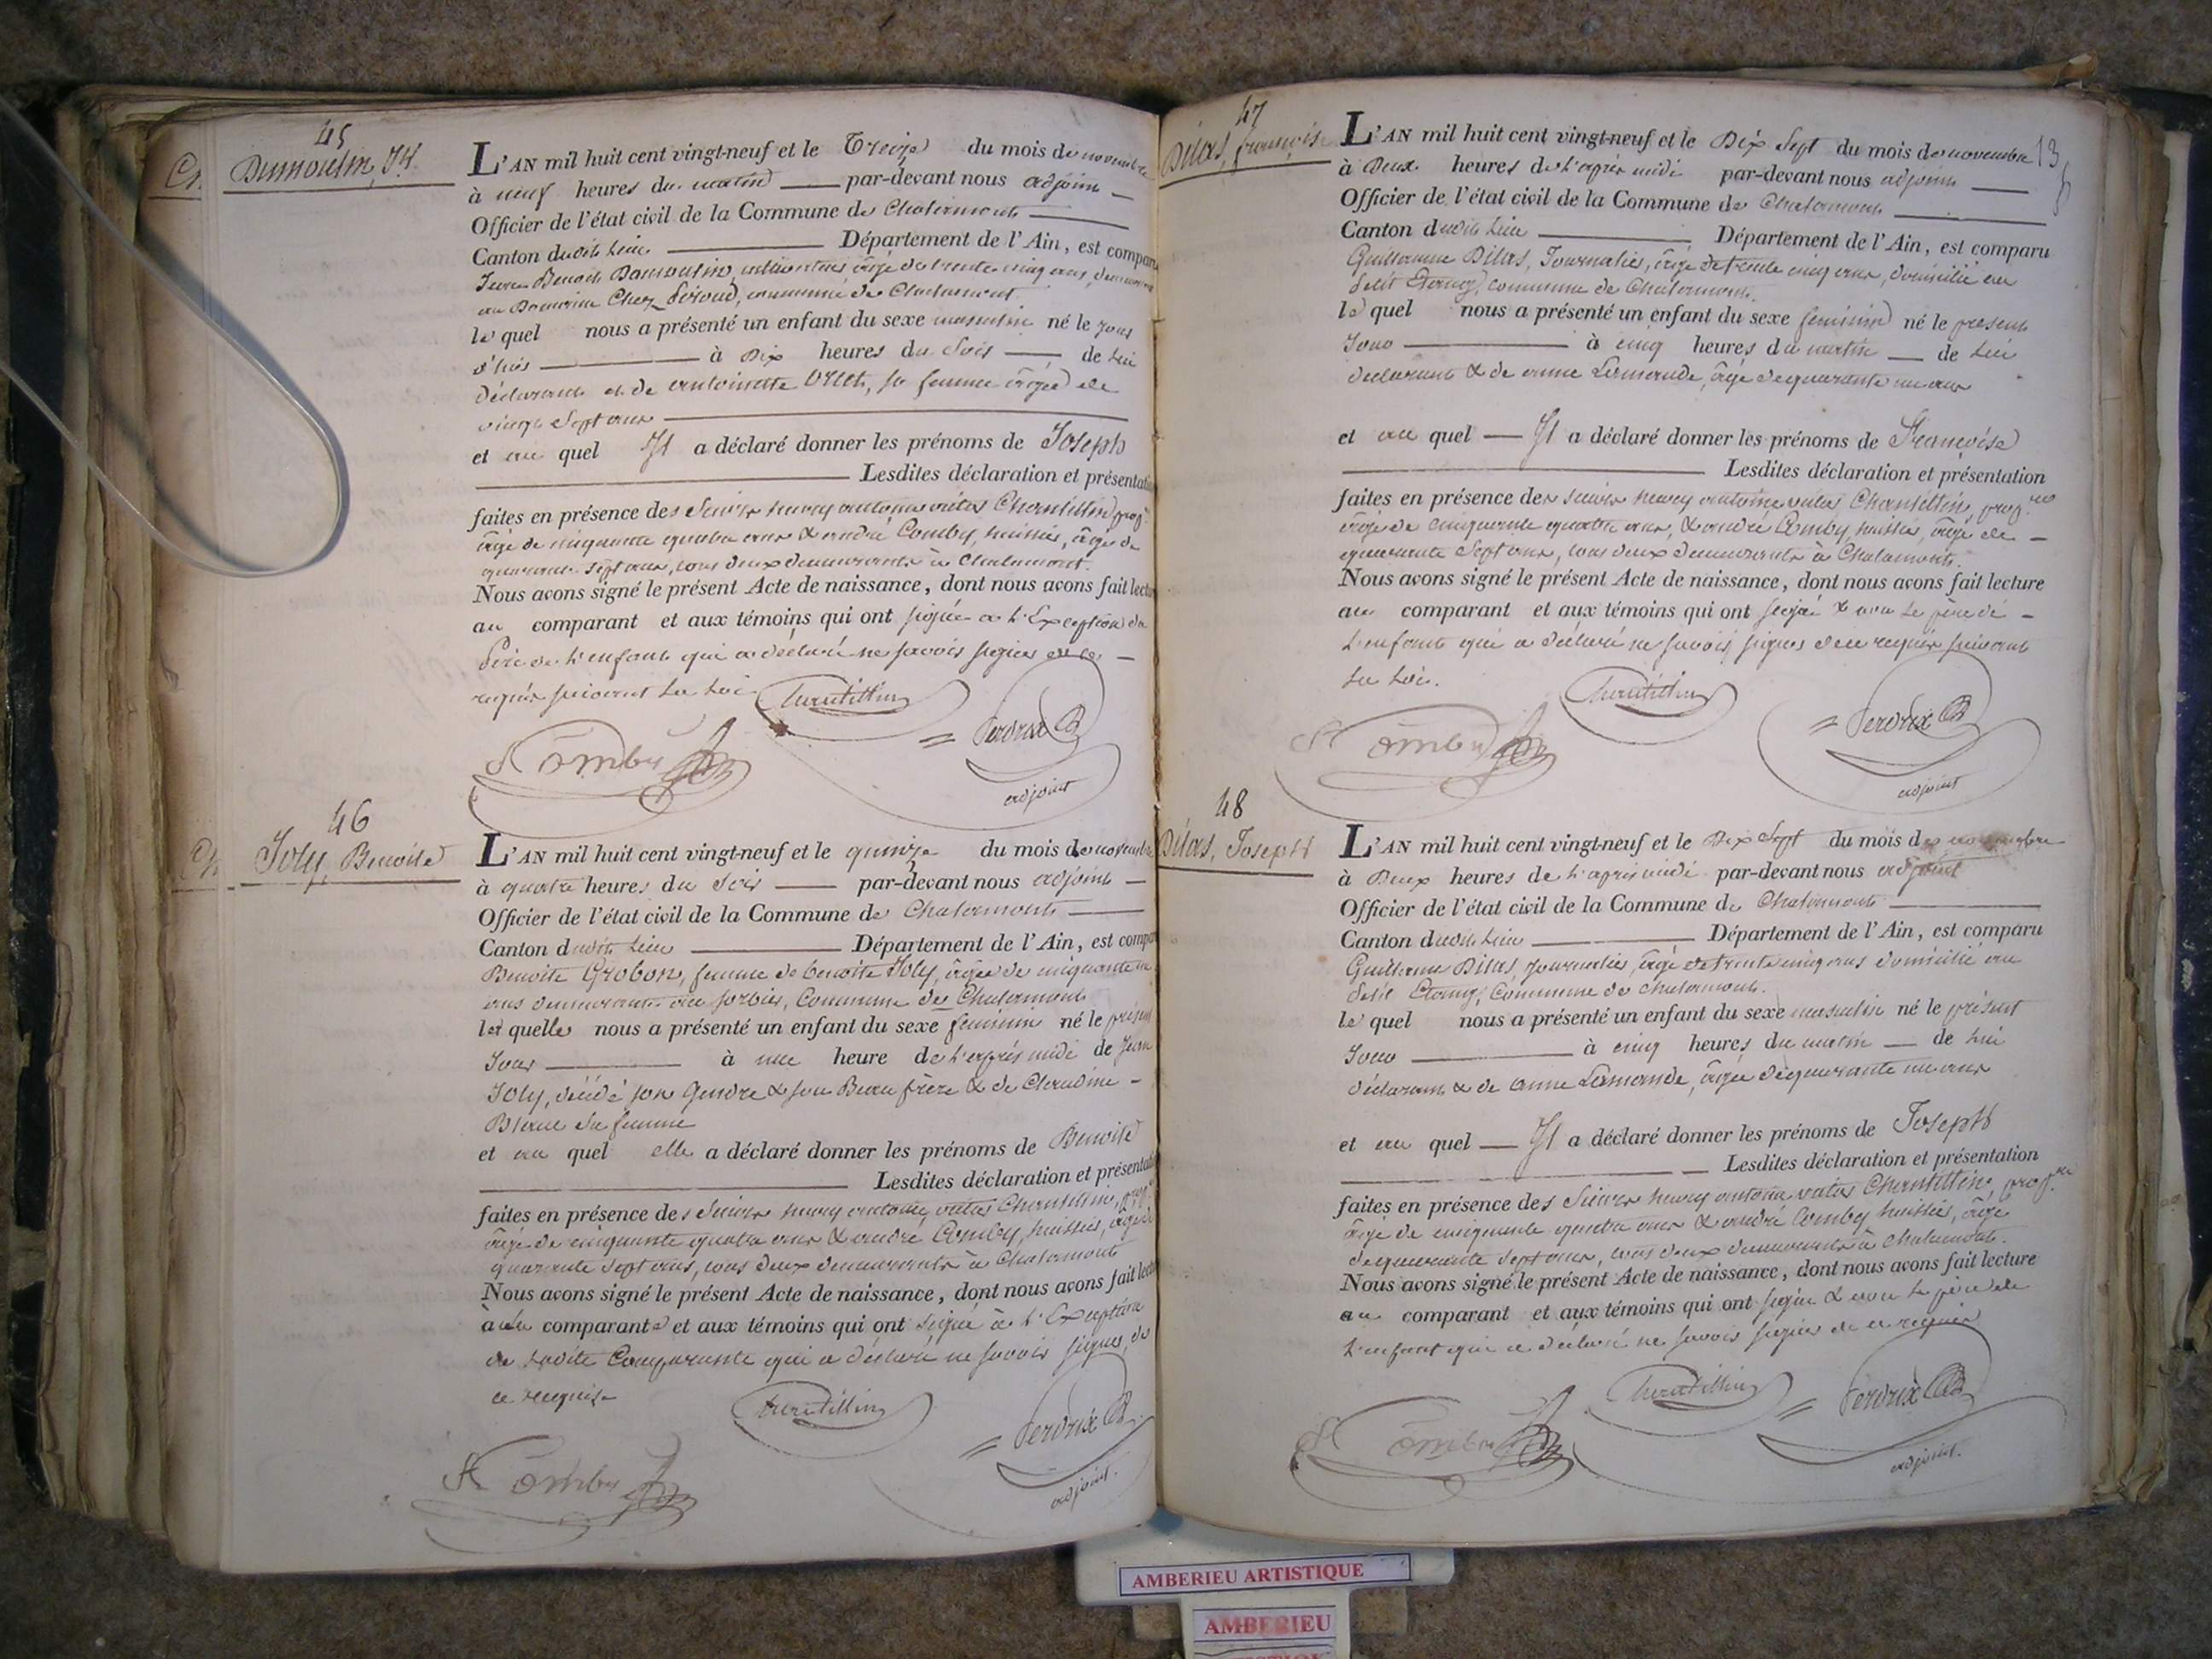 45
Dumoulin, Jh.
L'AN mil huit cent vingt-neuf et le Treize du mois de novembre
à neuf heures du matin par-devant nous adjoint
Officier de l'état civil de la Commune de Chalamont
Canton dudit Lieu Département de l'Ain, est comparu
Benoit Dumoulin, cultivateur âgé de trente cinq ans,
au Domaine Chez commune de Chalamont
le quel nous a présenté un enfant du sexe masculin né le jour
d'hier à Dix heures du Soir de Lui
déclarant et de antoinette sa femme âgée de
vingt Sept ans
et au quel Il a déclaré donner les prénoms de Joseph
Lesdites déclaration et présentation
faites en présence des Sieurs henry antoine vitas Chantillin prop.re
âgé de cinquante quatre ans & andré Comby, huissier, âgé de
quarante Sept ans, tous deux demeurants à Chalamont.
Nous avons signé le présent Acte de naissance, dont nous avons fait lecture
au comparant et aux témoins qui ont signé à l'Exception du
Père de l'enfant qui a déclaré ne savoir signer de ce
requis suivant La Loi
Chantillin
Perdrix
adjoint
Comby
46
Joly, Benoite
L'AN mil huit cent vingt-neuf et le quinze du mois de novembre
à quatre heures du Soir par-devant nous adjoint
Officier de l'état civil de la Commune de Chalamont
Canton dudit Lieu Département de l'Ain, est comparu
Benoite Grobon, femme de benoite Joly, âgée de cinquante
ans demeurante au Commune de Chalamont
laquelle nous a présenté un enfant du sexe feminin né le présent
Jour à une heure de l'après midi de Jean
Joly, décédé son Gendre & son Beau frère & de Claudine
sa femme
et au quel elle a déclaré donner les prénoms de Benoite
Lesdites déclaration et présentation
faites en présence des Sieurs henry antoine vitas Chantillin, prop.
âgé de cinquante quatre ans & andré Comby, huissier, âgé de
quarante Sept ans, tous deux demeurants à Chalamont
Nous avons signé le présent Acte de naissance, dont nous avons fait lecture
à la comparante et aux témoins qui ont signé à l'Exception
de Ladite Comparante qui a déclaré ne savoir signer de
ce requise
Chantillin
Perdrix
adjoint.
Comby
47
Dilas, françoise
13
L'AN mil huit cent vingt-neuf et le Dix Sept du mois de novembre
à Deux heures de l'après midi par-devant nous adjoint
Officier de l'état civil de la Commune de Chalamont
Canton dudit Lieu Département de l'Ain, est comparu
Guillaume Dilas, Journalier, âgé de trente cinq ans, domicilié au
Petit Etang, commune de Chalamont.
le quel nous a présenté un enfant du sexe feminin né le présent
Jour à cinq heures du matin de Lui
déclarant & de anne Lamande, âgée de quarante un ans
et au quel Il a déclaré donner les prénoms de Françoise
Lesdites déclaration et présentation
faites en présence des Sieurs henry antoine vitas Chantillin, prop.re
âgé de cinquante quatre ans, & andré Comby, huissier, âgé de
quarante Sept ans, tous deux demeurants à Chalamont.
Nous avons signé le présent Acte de naissance, dont nous avons fait lecture
au comparant et aux témoins qui ont signé & non Le père de
L'enfant qui a déclaré ne savoir signer de ce requis suivant
La Loi.
Chantillin
Perdrix
adjoint
Comby
48
Dilas, Joseph
L'AN mil huit cent vingt-neuf et le Dix Sept du mois de novembre
à Deux heures de l'après midi par-devant nous adjoint
Officier de l'état civil de la Commune de Chalamont
Canton dudit Lieu Département de l'Ain, est comparu
Guillaume Dilas, Journalier, âgé de trente cinq ans domicilié au
Petit Etang, Commune de Chalamont.
le quel nous a présenté un enfant du sexe masculin né le présent
Jour à cinq heures du matin de Lui
déclarant & de anne Lamande, âgée de quarante un ans
et au quel Il a déclaré donner les prénoms de Joseph
Lesdites déclaration et présentation
faites en présence des Sieurs henry antoine vitas Chantillin, prop.re
âgé de cinquante quatre ans & andré Comby huissier, âgé
de quarante Sept ans, tous deux demeurants à Chalamont.
Nous avons signé le présent Acte de naissance, dont nous avons fait lecture
au comparant et aux témoins qui ont signé & non Le père de
L'enfant qui a déclaré ne savoir signer de ce requis
Chantillin
Perdrix
adjoint.
Comby
AMBERIEU ARTISTIQUE
AMBERIEU